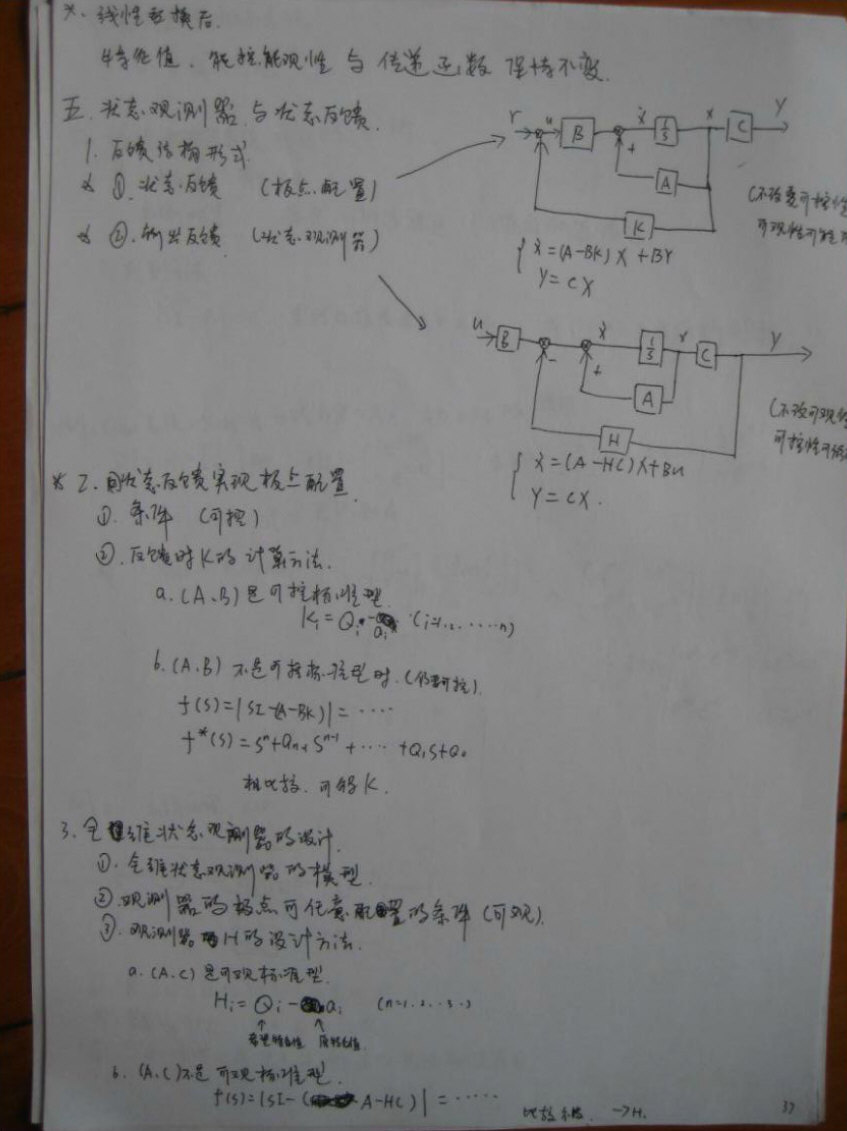 *. 线性变换后.
特征值. 能控能观性 与 传递函数 保持不变.
五. 状态观测器与状态反馈.
1. 反馈结构形式.
* ①. 状态反馈 (极点配置)
* ②. 输出反馈 (状态观测器)
r u B ẋ 1/S x C Y
+
A
K
(不改变可控性
可观性可能
{ ẋ=(A-BK)X+BY
Y=CX
u B ẋ 1/S x C Y
- +
A
H
(不改可观
可控性可
{ ẋ=(A-HC)X+Bu
Y=CX.
* 2. 用状态反馈实现极点配置
①. 条件 (可控)
②. 反馈时K的计算方法.
a. (A、B)是可控标准型.
Ki=Qi-ai (i=1.2.....n)
b. (A、B) 不是可控标准型时. (仍要可控).
f(S)=|SI-(A-BK)|=....
f*(S)=Sⁿ+Qn-1Sⁿ⁻¹+....+Q1S+Q0
相比较. 可得K.
3. 全维状态观测器的设计.
①. 全维状态观测器的模型.
②. 观测器的极点可任意配置的条件(可观).
③. 观测器H的设计方法.
a. (A、C)是可观标准型.
Hi=Qi-ai (n=1.2..3..)
↑ ↑
b. (A、C)不是可观标准型.
f(S)=|SI-(A-HC)|=.....
比较系数. →H.
37